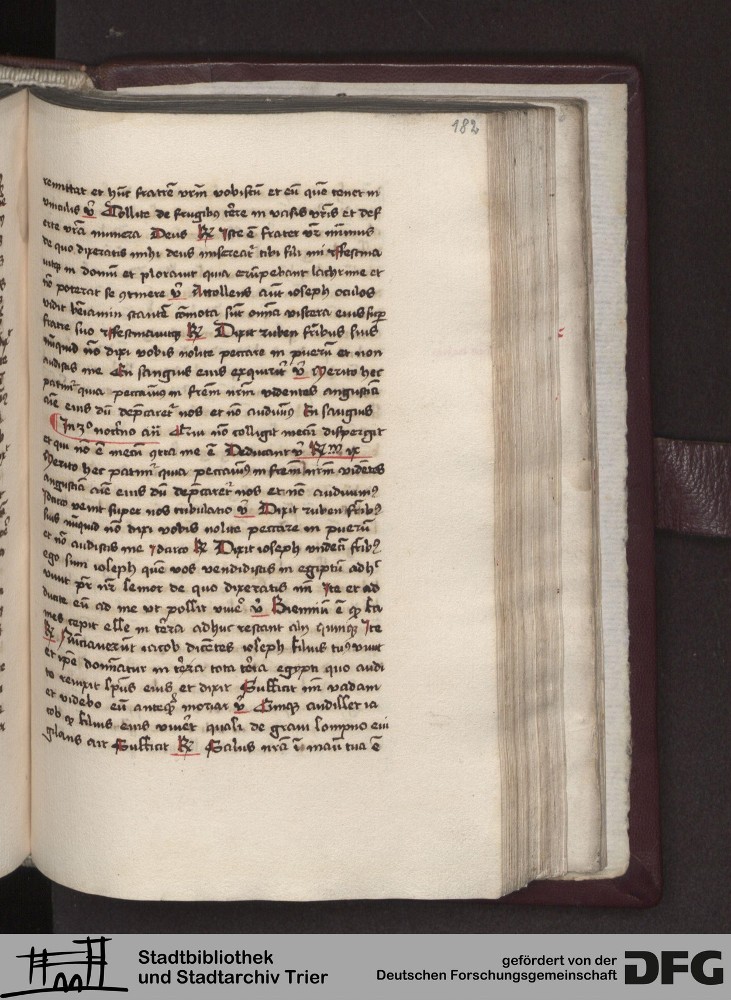 182
remittat et hūc fratrē vrm̄ vobiscū et eū quē tenet in
vinculis v̄ Tollite de frugibꝰ terre in vasis vr̄is et def
erte viro munera Deus R̄ Iste ē frater vr̄ minimus
de quo dixeratis mihi deus misereat᷑ tibi fili mi Festina
uitqꝫ in domū et plorauit quia erūpebant lachrime et
nō poterat se ꝯtinere v̄ Attollens aūt ioseph oculos
vidit beniamin stantē cōmota sūt om̄ia viscera eius suꝑ
fratre suo Festinauitqꝫ R̄ Dixit ruben fr̄ibus suis
nūquid nō dixi vobis nolite peccare in puerū et non
audistis me En sanguis eius exquirit᷑ v̄ Merito hec
patimur quia peccauimꝰ in frem̄ nrm̄ videntes angustiā
aīe eius dū dep̄caret᷑ nos et nō audiuimꝰ En sanguis
In 3º noct̄no añ Qui nō colligit mecū dispergit
et qui nō ē mecū ꝯtra me ē Deducant v̄ R̄ ix
Merito hec patimur quia peccauimꝰ in frem̄ nrm̄ vidētes
angustiā aīe eius dū dep̄caret᷑ nos et nō audiuimꝰ
Idcirco venit super nos tribulatio v̄ Dixit ruben fr̄ibꝰ
suis nūquid nō dixi vobis nolite peccare in puerū
et nō audistis me Idcirco R̄ Dixit ioseph vndecī fr̄ibꝰ
ego sum ioseph quē vos vendidistis in egiptū adhᶜ
viuit pr̄ nr̄ senior de quo dixeratis m̄ Ite et ad
ducite eū ad me vt possit viue᷑ v̄ Bienniū ē qꝫ fa
mes cepit esse in terra adhuc restant anni quinqꝫ Ite
R̄ Nūciauerūt iacob dicētes ioseph filius tuꝰ viuit
et ip̄e dominatur in terra tota terra egypti quo audi
to reuixit sp̄us eius et dixit Sufficit m̄ vadam
et videbo eū anteqꝫ moriar v̄ Cumqꝫ audisset ia
cob qꝫ filius eius viuēt quasi de graui sompno eui
gilans ait Sufficit R̄ Salus nra ī manu tua ē
Stadtbibliothek
und Stadtarchiv Trier
gefördert von der
Deutschen Forschungsgemeinschaft
DFG